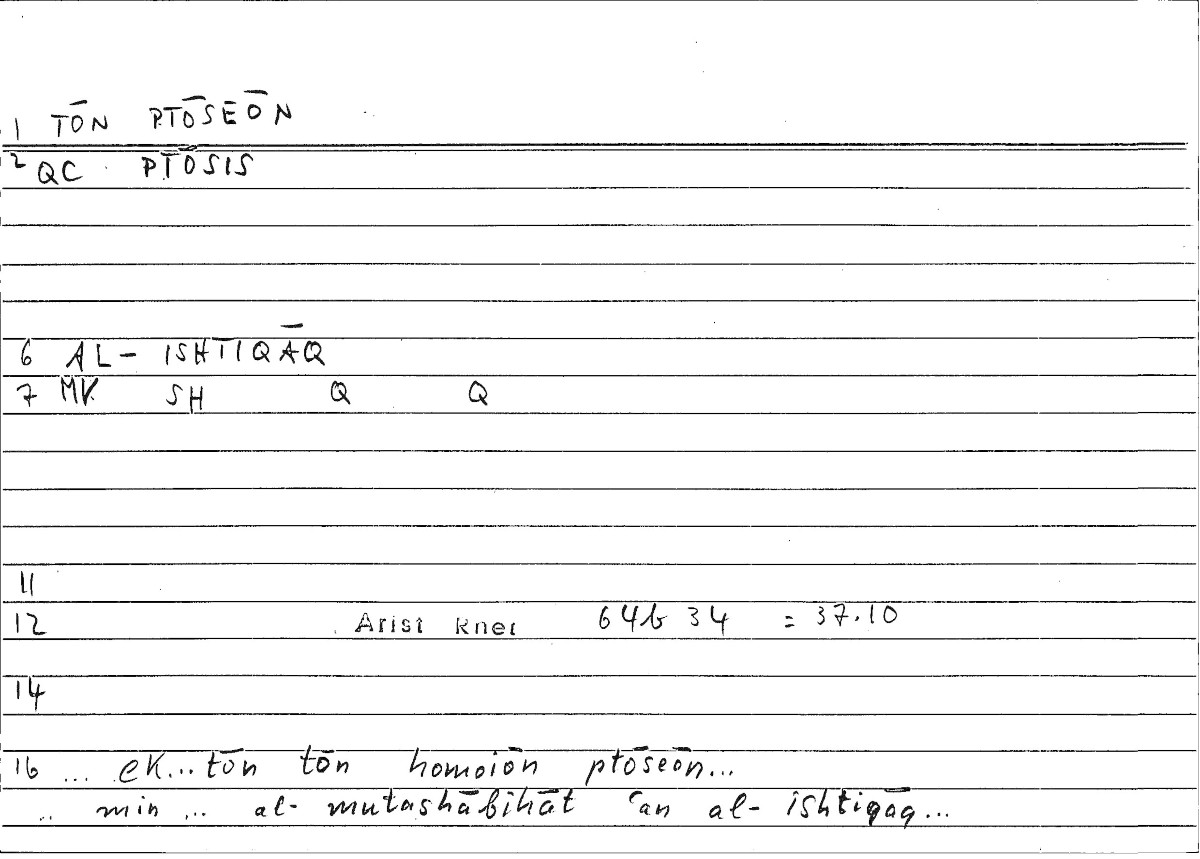 1 TŌN PTŌSEŌN
2 QC PTŌSIS
6 AL- ISHTIQĀQ
7 MV SH Q Q
11
12 Arist Rhet 64b 34 = 37.10
14
16 ... ek... tōn tōn homoiōn ptōseōn...
.. min ... al- mutashābihāt ʿan al- ishtiqāq...